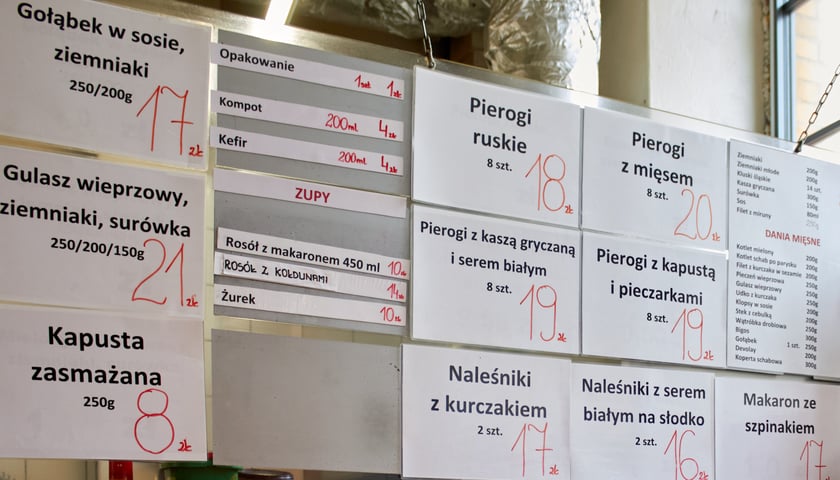 Gołąbek w sosie,
ziemniaki
250/200g
17 zł
Gulasz wieprzowy,
ziemniaki, surówka
250/200/150g
21 zł
Kapusta
zasmażana
250g
8 zł
Opakowanie 1szt 1zł
Kompot 200ml 4zł
Kefir 200ml 4zł
ZUPY
Rosół z makaronem 450 ml 10zł
ROSÓŁ Z KOŁDUNAMI 14zł
Żurek 10zł
Pierogi
ruskie
8 szt.
18 zł
Pierogi
z mięsem
8 szt.
20 zł
Pierogi z kaszą gryczaną
i serem białym
8 szt.
19 zł
Pierogi z kapustą
i pieczarkami
8 szt.
19 zł
Naleśniki
z kurczakiem
2 szt.
17 zł
Naleśniki z serem
białym na słodko
2 szt.
16 zł
Makaron ze
szpinakiem
17 zł
Ziemniaki 200g
Ziemniaki młode 200g
Kluski śląskie 14 szt.
Kasza gryczana 300g
Surówka 150g
Sos 80ml
Filet z miruny 250g
DANIA MIĘSNE
Kotlet mielony 200g
Kotlet schab po parysku 200g
Filet z kurczaka w sezamie 200g
Pieczeń wieprzowa 250g
Gulasz wieprzowy 250g
Udko z kurczaka 250g
Klopsy w sosie 250g
Stek z cebulką 200g
Wątróbka drobiowa 250g
Bigos 300g
Gołąbek 1 szt. 250g
Devolay 200g
Koperta schabowa 300g